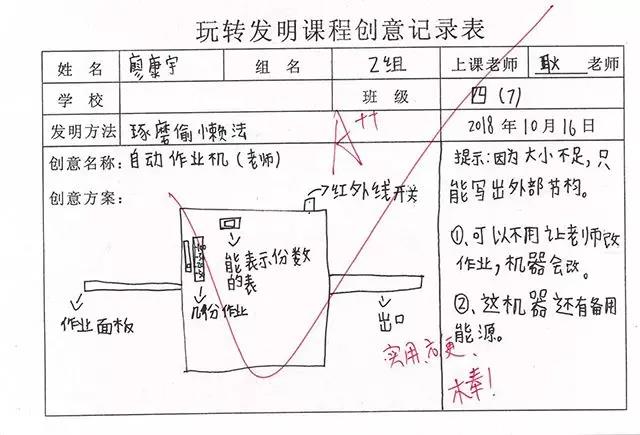 玩转发明课程创意记录表
姓 名 廖康宇 组 名 2组 上课老师 耿 老师
学 校 班 级 四(7)
发明方法 琢磨偷懒法 2018 年 10 月 16 日
A++
创意名称: 自动作业机(老师)
创意方案:
红外线开关
能表示份数
的表
几份作业
作业面板
出口
提示:因为大小不足,只
能写出外部节构。
①、可以不用让老师改
作业,机器会改。
②、这机器还有备用
能源。
实用、方便、
棒!